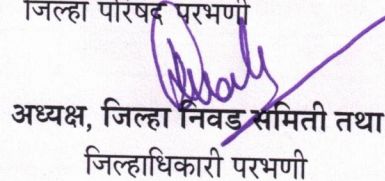 जिल्हा परिषद परभणी
अध्यक्ष, जिल्हा निवड समिती तथा
जिल्हाधिकारी परभणी